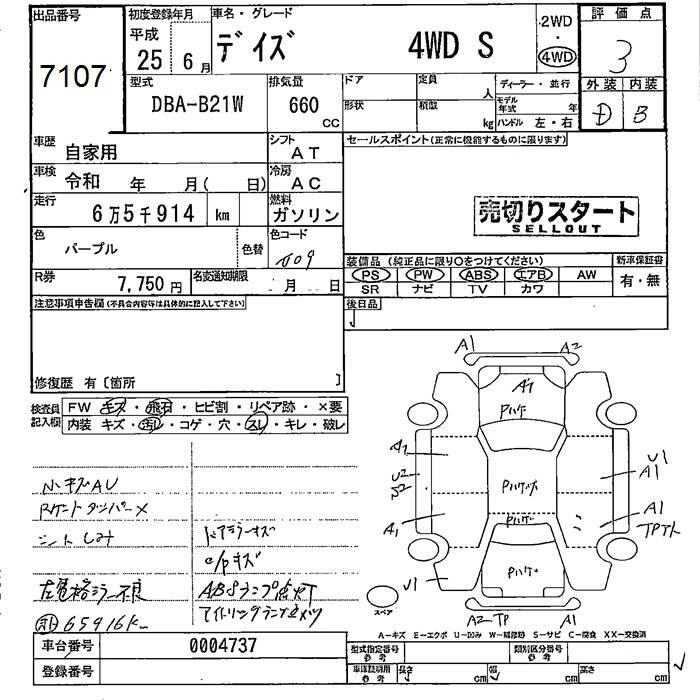 出品番号
7107
初度登録年月
平成
25年 6月
車名・グレード
デイズ 4WD S
2WD
・
4WD
評価点
3
外装 内装
D B
型式
DBA-B21W
排気量
660
CC
ドア
定員
人
形状
積載
kg
ディーラー・並行
モデル年式 年
ハンドル 左・右
車歴
自家用
シフト
AT
車検
令和 年 月( 日)
冷房
AC
走行
6万5千914 km
燃料
ガソリン
色
パープル
色替
色コード
R券
7,750円
名変通知期限
月 日
セールスポイント(正常に機能するものに限ります)
売切りスタート
SELLOUT
装備品(純正品に限り○をつけてください)
PS PW ABS エアB AW
SR ナビ TV カワ
新車保証書
有・無
後日品
注意事項申告欄(不具合内容等は具体的に記入して下さい)
修復歴 有〔箇所 〕
検査員記入欄
FW キズ・飛石・ヒビ割・リペア跡・×要
内装 キズ・汚レ・コゲ・穴・スレ・キレ・破レ
シートしみ
左電格ミラー不良
65916K
ドアミラーキズ
ABSランプ点灯
アイドリングランプ点メツ
A1 A2
A1
A1
U2
A1
U1
U1
A1
A1
スペア
A2 TP A1
A-キズ E-エクボ U-凹み W-補修跡 S-サビ C-腐食 XX-交換済
車台番号
0004737
登録番号
型式指定番号
参考
類別区分番号
参考
車庫証明用
参考
長さ cm
幅 cm
高さ cm